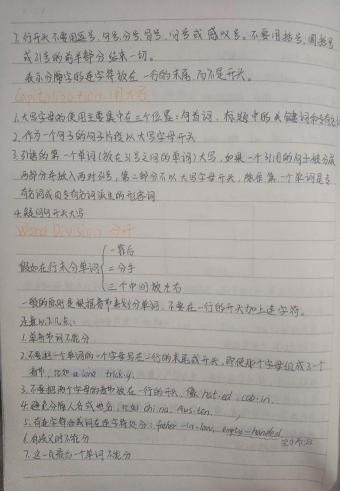 3.行开头不要用逗号,句号,分号,冒号,问号或感叹号。不要用括号,圆括号
或引号的前半部分结束一切。
表示分隔字的连字符放在一行的末尾,而不是开头。
Capitalization 用大写
1.大写字母的使用主要集中在三个位置:句首词,标题中的关键词和专有名词
2.作为一个句子的句子片段以大写字母开头
3.引语的第一个单词(放在引号之间的单词)大写,如果一个引用的句子被分成
两部分并放入两对引号,第二部分不以大写字母开头,除非第一个单词是专
有名词或由专有名词派生的形容词
4.疑问句开头大写
Word Division 分字
假如在行末分单词
一靠后
二分手
三个中间放左右
一般的原则是根据音节来划分单词,不要在一行的开头加上连字符。
注意以下几点:
1.单音节词不能分
2.不要把一个单词的一个字母写在一行的末尾或开头,即使那个字母组成了一个
音节,比如 a·lone trick·y.
3.不要把两个字母的音节放在一行的开头,像 hat·ed cab·in.
4.避免分隔人名或地名,比如 Chi·na, Aus·ten.
5.有连字符的或词在连字符处分:father-in-law, empty-handed
6.有歧义时不能分
7.这一页最后一个单词不能分